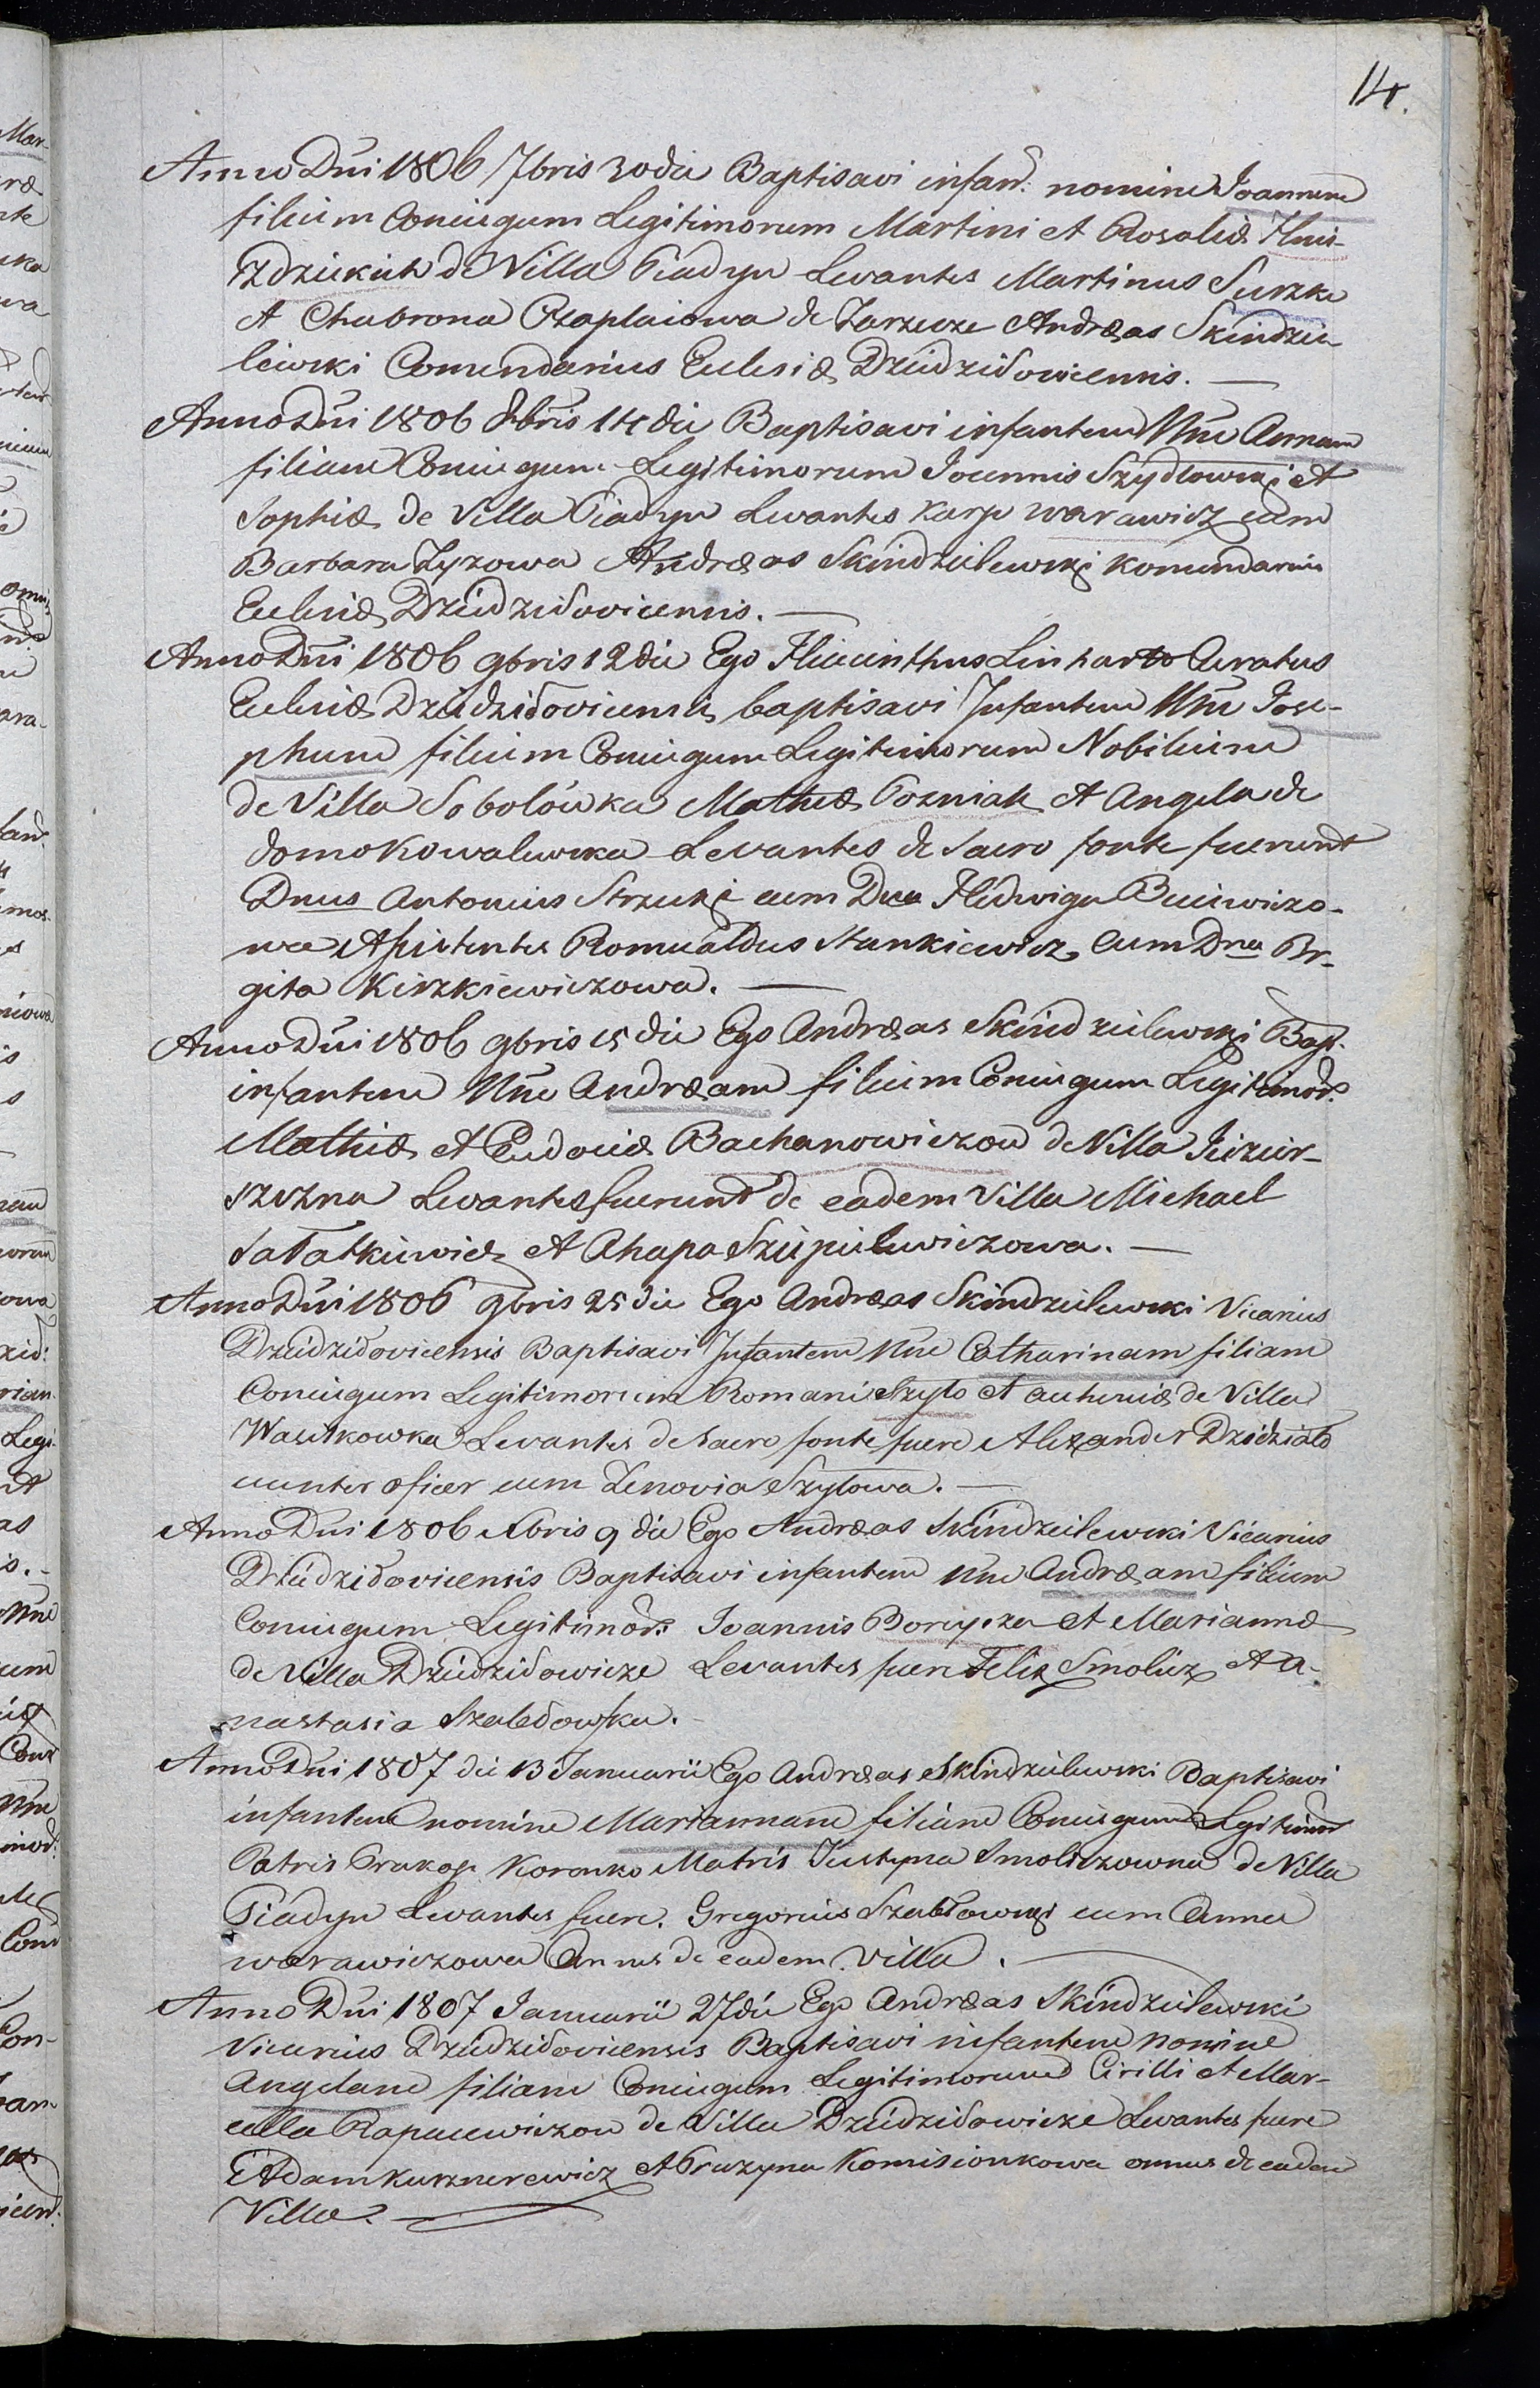 14.
Anno Dni 1806 7bris 30 die Baptisavi infan: nomine Joannem
filium Coniugum Legitimorum Martini et Rosaliæ
de Villa Piadyn Levantes Martinus Surzko
et Chabrona de Zarzecze Andræas Skindzie
lewski Comendarius Eclesiæ Dziudzidowicensis. —
Anno Dni 1806 8bris 14 die Baptisavi infantem Nne Annam
filiam Coniugum Legitimorum Joannis Szydlowski et
Sophiæ de Villa Piadyn Levantes Karp warawicz cum
Barbara Zyzowa Andræas Skindzielewski Komendarius
Eclesiæ Dziudzidovicensis. —
Anno Dni 1806 9bris 12 die Ego Hiacinthus Linhart Curatus
Eclesiæ Dziudzidovicensis baptisavi Infantem Nne Jose-
phum filium Coniugum Legitimorum Nobilium
de Villa Sobolówka Mathæ Pozniak et Angela de
domo Kowalewska Levantes de Sacro fonte fuerunt
Dnus Antonius Strzuki cum Dna Hedwiga
Asistentes Romualdus Stankiewicz cum Dna Br-
gita Kirzkiewiczowa. —
Anno Dni 1806 9bris 15 die Ego Andræas Skindzielewski Bapt.
infantem Nne Andræam filium Coniugum Legitimor:
Mathiæ et Eudociæ Bachanowiczow de Villa
Levantes fuerunt de eadem Villa Michael
Sałatkiewicz et Ahapa Szupielewiczowa. —
Anno Dni 1806 9bris 25 die Ego Andræas Skindzielewski Vicarius
Dziudzidovicensis Baptisavi Infantem Nne Catharinam filiam
Coniugum Legitimorum Romani Szyło et de Villa
Wasilkowka Levantes de Sacro fonte fuere Alexander
unter oficer cum Zenovia Szyłowa. —
Anno Dni 1806 Xbris 9 die Ego Andræas Skindzielewski Vicarius
Dziudzidovicensis Baptisavi infantem Nne Andræam filium
Coniugum Legitimor: Joannis et Mariannæ
de Villa Dziudzidowicze Levantes fuere Felix Smolicz et A-
nastasia
Anno Dni 1807 die 13 Januarii Ego Andræas Skindzielewski Baptisavi
infantem nomine Mariannam filiam Coniugum Legitimor
Patris Prakop Koronko Matris Justyna Smoliczowna de Villa
Piadyn Levantes fuere. Gregorius Szablowski cum Anna
warawiczowa Omnes de eadem Villa. —
Anno Dni 1807 Januarii 27 die Ego Andræas Skindzielewski
Vicarius Dziudzidovicensis Baptisavi infantem nomine
Angelam filiam Coniugum Legitimorum Cirilli et Mar-
cella Rapacewiczow de Villa Dziudzidowicze Levantes fuere
Adam Kusznerewicz et Pruzyna Komisionkowa omnes de eadem
Villa. —